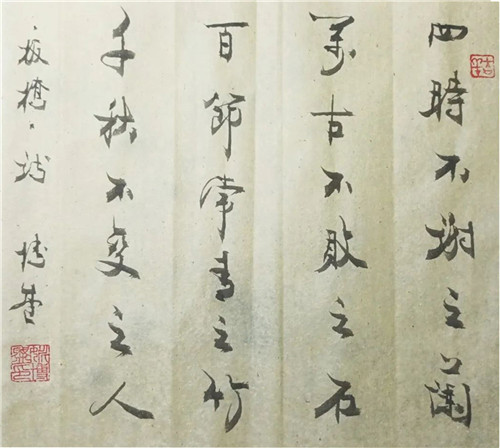 四時不謝之蘭
萬古不敗之石
百節常青之竹
千秋不變之人
板橋